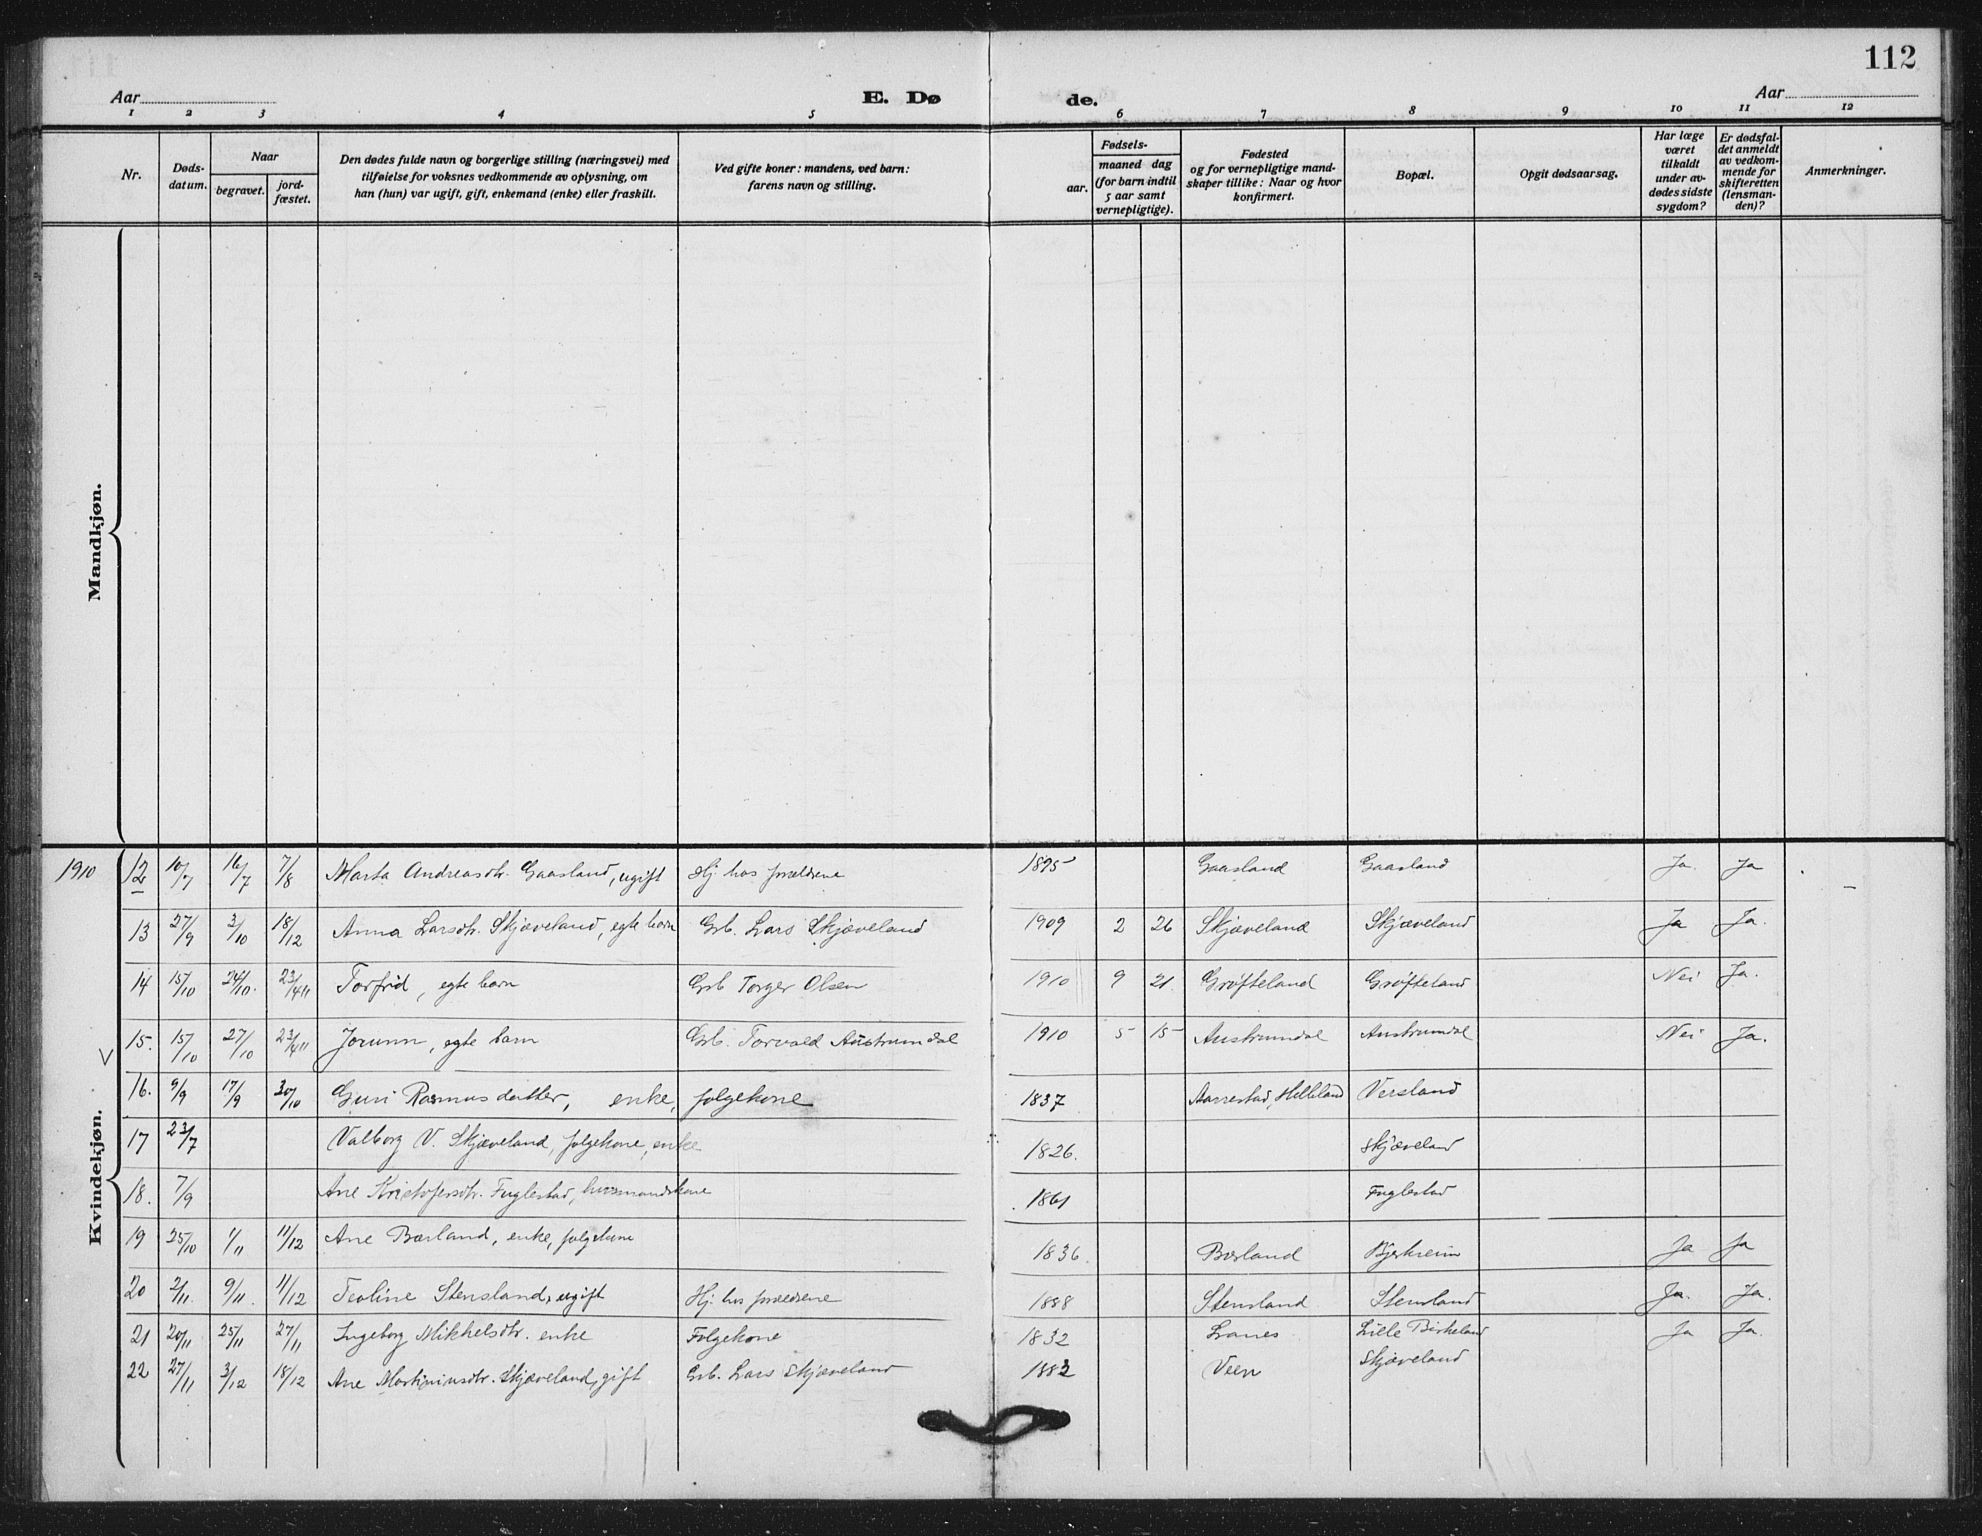 112
Aar
E. Dø
de.
Aar
1 2 3 4 5 6 7 8 9 10 11 12
Nr.
Døds-
datum.
Naar
begravet.
jord-
fæstet.
Den dødes fulde navn og borgerlige stilling (næringsvei) med
tilføielse for voksnes vedkommende av oplysning, om
han (hun) var ugift, gift, enkemand (enke) eller fraskilt.
Ved gifte koner: mandens, ved barn:
farens navn og stilling.
Fødsels-
aar.
maaned dag
(for barn indtil
5 aar samt
vernepligtige).
Fødested
og for vernepligtige mand-
skaper tillike: Naar og hvor
konfirmert.
Bopæl.
Opgit dødsaarsag.
Har læge
været
tilkaldt
under av-
dødes sidste
sygdom?
Er dødsfal-
det anmeldt
av vedkom-
mende for
skifteretten
(lensman-
den)?
Anmerkninger.
Mandkjøn.
Kvindekjøn.
1910 12 10/7 16/7 7/8 Marta Andreasdtr. Gaasland, ugift Hj. hos forældrene 1895 Gaasland Gaasland Ja. Ja
13 27/9 3/10 18/12 Anna Larsdtr. Skjæveland, egte barn Grb. Lars Skjæveland 1909 2 26 Skjæveland Skjæveland Ja Ja.
14 15/10 24/10. 23/4 11 Torfrid, egte barn Grb Torger Olsen 1910 9 21. Grøfteland Grøfteland Nei Ja.
15. 15/10 27/10 23/4 11 Jorunn, egte barn Grb. Torvald Austrumdal 1910 5 15 Austrumdal Austrumdal Nei Ja.
16. 9/9 17/9 30/10 Guri Rasmusdatter, enke, folgekone 1837 Aarrestad, Helleland Versland
17 23/7 Valborg V. Skjæveland, folgekone, enke 1826. Skjæveland
18. 7/9 Ane Kristofersdtr. Fuglestad, husmandskone 1861 Fuglestad
19 25/10 1/11 11/12 Ane Bærland, enke, folgekone 1836. Bærland Bjerkreim Ja Ja
20 2/11. 9/11. 11/12 Teoline Stensland, ugift Hj. hos forældrene 1888 Stensland Stensland Ja. Ja.
21 20/11 25/11 27/11 Ingeborg Mikkelsdtr. enke Folgekone 1832 Lanes Lille Birkeland Ja Ja.
22 27/11 3/12 18/12 Ane Martiniusdtr. Skjæveland, gift Grb. Lars Skjæveland 1882 Veen Skjæveland